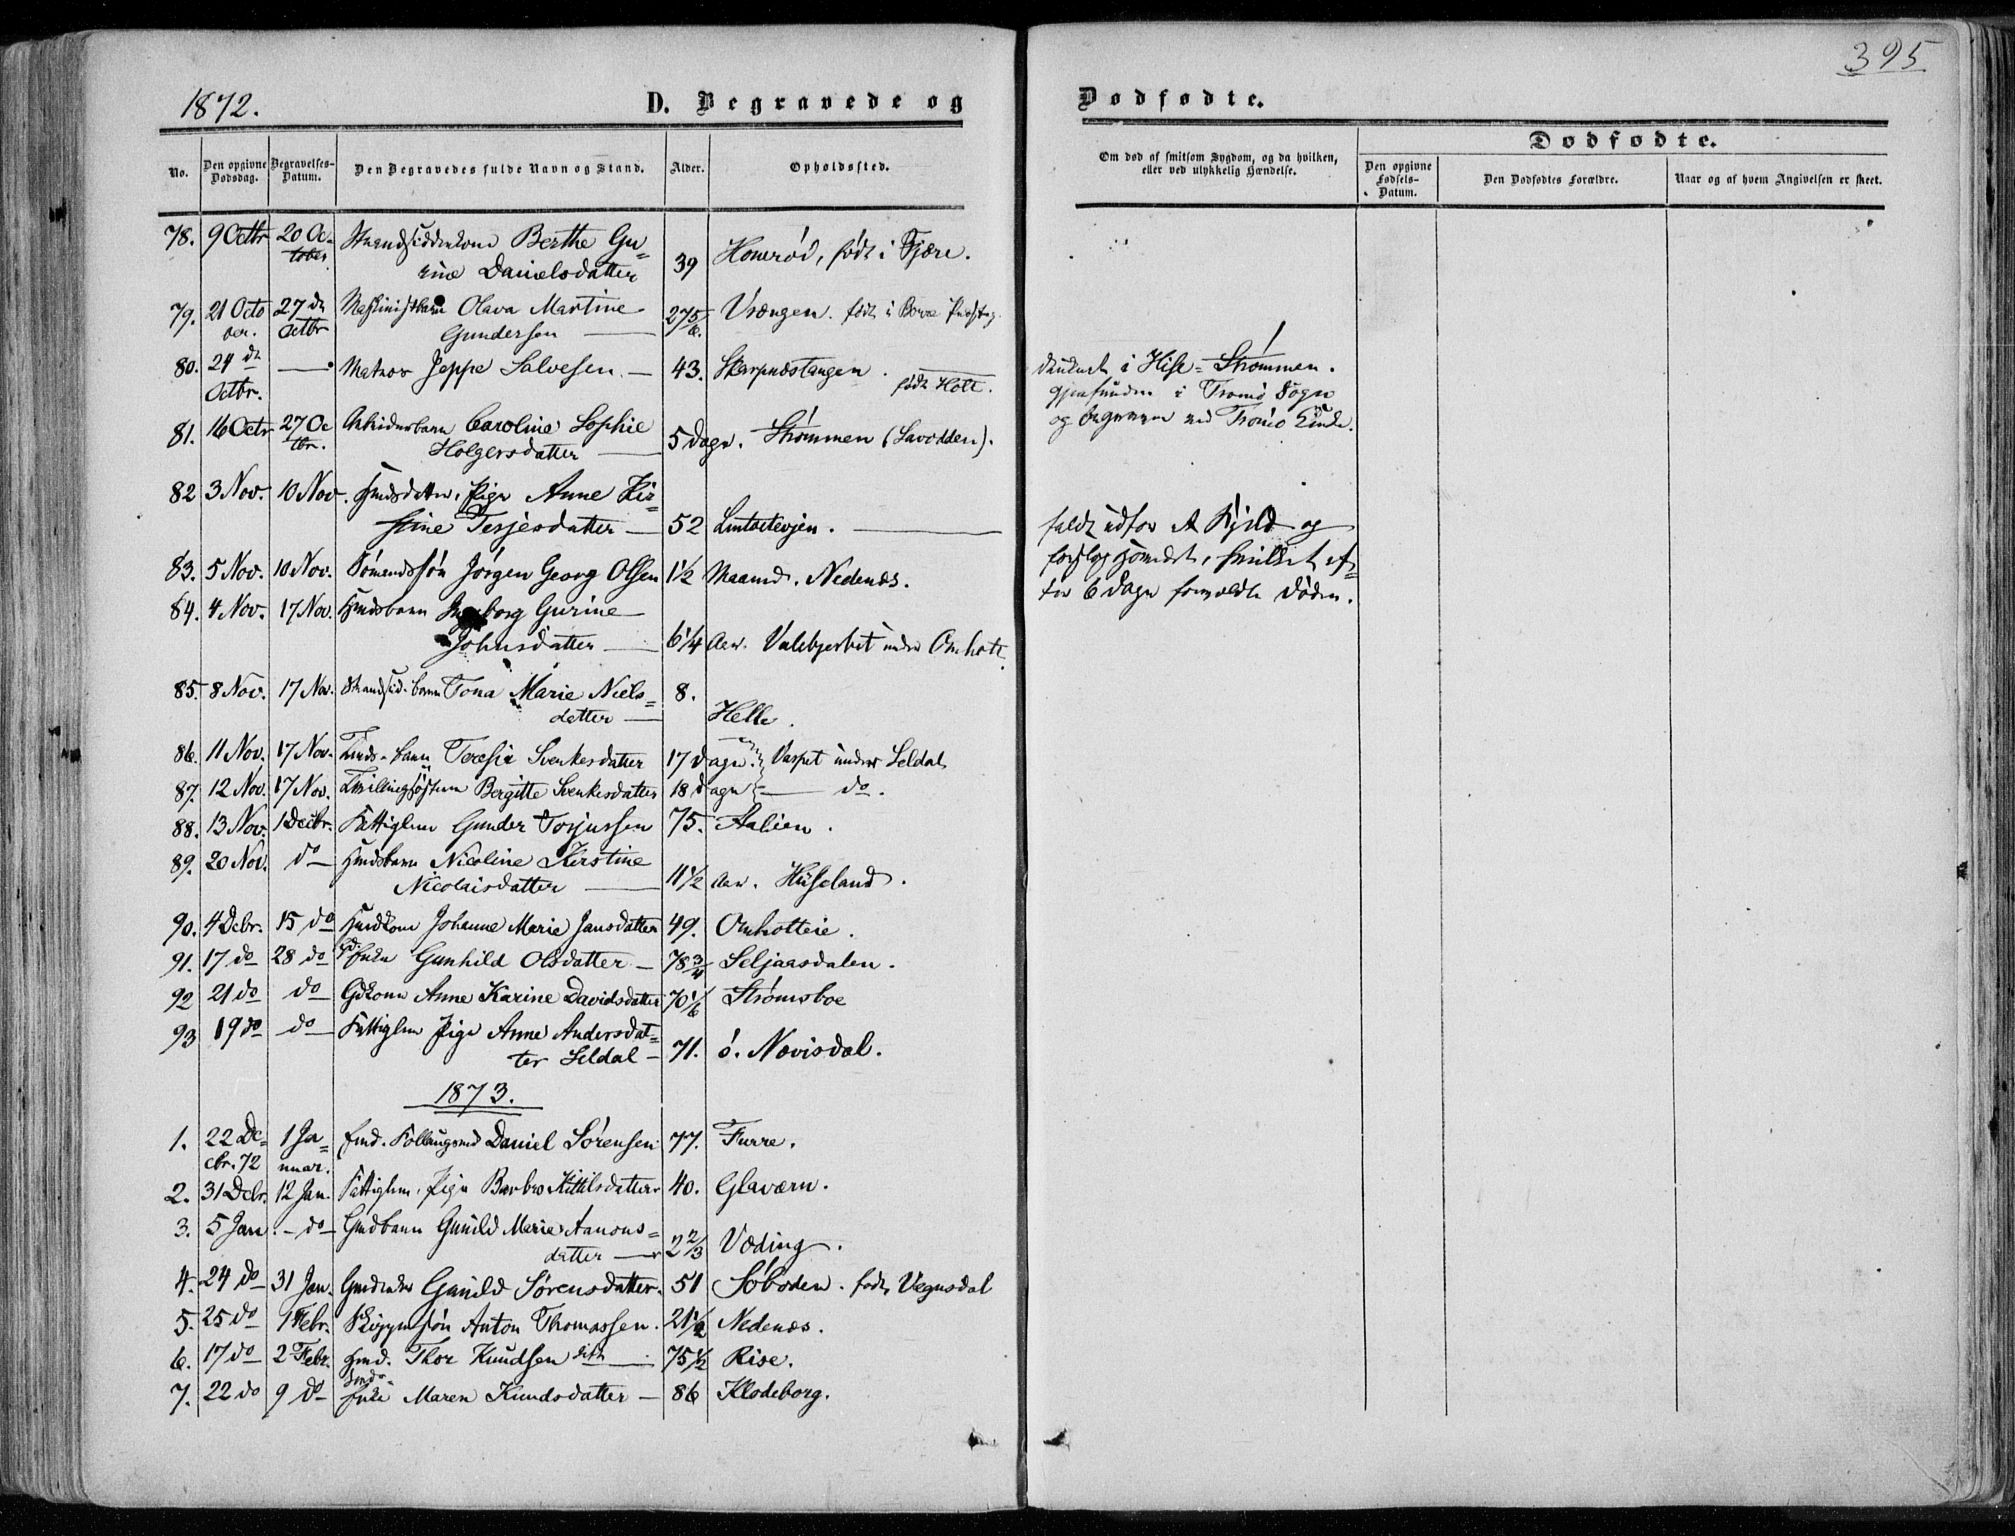 395
1872.
D. Begravede og
Dødfødte.
No.
Den opgivne Dødsdag.
Begravelses-Datum.
Den Begravedes fulde Navn og Stand.
Alder.
Opholdssted.
Om død af smitsom Sygdom, og da hvilken, eller ved ulykkelig Hændelse.
Dødfødte.
Den opgivne Fødsels-Datum.
Den Dødfødtes Forældre.
Naar og af hvem Angivelsen er skeet.
78. 9 Octbr 20 Oc- Strandsidderkone Berthe Gu-
tober rine Danielsdatter 39 født i Fjære.
79. 21 Octo 27 de Maskinistbarn Olava Martine 2 75/6. Vrængen. født i Borre
ber. Octbr Gundersen
80. 24 de — Matros Jeppe Salvesen. — 43. Skarpnæstangen. født Holt.
Octbr.
druknet i Hisø-Strømmen.
gjenfunden i Tromø Sogn
og begraven ved Tromø Kirke.
81. 16 Octr 27 Oc Arbeiderbarn Caroline Sophie
tbr. Holgersdatter — 5 Dage. Strømmen (Savodden).
82 3 Nov. 10 Nov. Pige Anne Kir-
stine Terjesdatter — 52
faldt udfor et Fjeld og
forslog Hovedet, hvilket ef-
ter 6 Dage forvoldte Døden.
83. 5 Nov. 10 Nov. Sømandssøn Jørgen Georg Olsen 1½ Maaned. Nedenæs.
84. 4 Nov. 17 Nov. Husmdsbarn Ingeborg Gurine
Johnsdatter — 6¼ Aar. under Omholt.
85. 8 Nov. 17 Nov. Strandsid. barn Tona Marie Niels- 8.
datter — Helle.
86. 11 Nov. 17 Nov. barn Teresie Svenkesdatter 17 Dage. under Seldal
87. 12 Nov. 17 Nov. Tvillingsøstren Bergitte Svenkesdatter 18 Dage — do.
88. 13 Nov. 1 Decbr. Fattiglem Gunder Torjussen 75. Aalien.
89. 20 Nov. do Hmdsbarn Nicoline Kirstine
Nicolaisdatter — 11½ Aar. Huseland.
90. 4 Debr. 15 do Hmdkone Johanne Marie Jansdatter 49. Omholteie.
91. 17 do 28 do Enke Gunhild Olsdatter — 78¾ Seljaasdalen.
92 21 do do Gdkone Anne Karine Davidsdatter 70 1/6 Strømsboe
93 19 do do Fattiglem Pige Anne Andersdat-
ter Seldal — 71. ø. Nævisdal.
1873.
1. 22 De- 1 Ja- Daniel Sørensen 77. Furre.
cbr. 72 nuar.
2. 31 Debr. 12 Jan. Fattiglem, Pige Barbro Kittilsdatter 40. Glaværn.
3. 5 Jan. — do — Gmdbarn Gunild Marie Aanons-
datter — 2⅔ Væding.
4. 24 do 31 Jan. Gunild Sørensdatter. 51 Søboden. født Vegusdal
5. 25 do 1 Febr. Anton Thomassen. 21½ Nedenæs.
6. 17 do 2 Febr. Hmd. Thor Knudsen — 75½ Rise.
7. 22 do 9 do Enke Maren Knudsdatter — 86 Klodeborg.